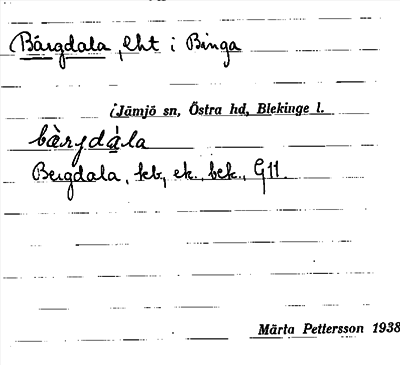 Bärgdala, lht i Binga
i Jämjö sn, Östra hd, Blekinge l.
bàrgdála
Bergdala, feb, ek., bek., G11.
Märta Pettersson 1938